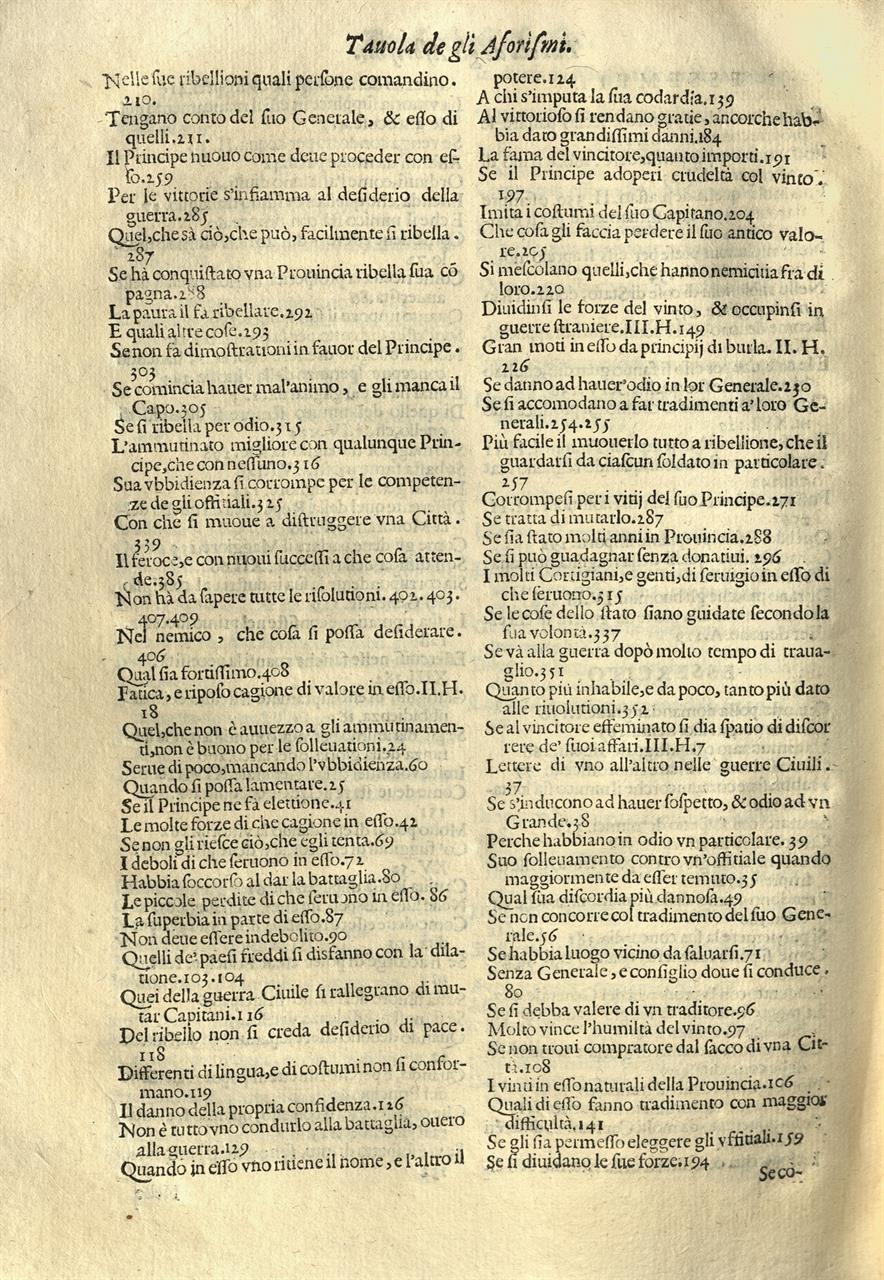 Tauola de gli Aforiſmi.
Nelle ſue ribellioni quali perſone comandino.
210.
Tengano conto del ſuo Generale, & eſſo di
quelli.211.
Il Principe nuouo come deue proceder con eſ-
ſo.259
Per le vittorie s'infiamma al deſiderio della
guerra.285
Quel,che sà ciò,che può, facilmente ſi ribella.
287
Se hà conquiſtato vna Prouincia ribella ſua cō
pagna.288
La paura il fà ribellare.292
E quali altre coſe.293
Se non fa dimoſtrationi in fauor del Principe.
303
Se comincia hauer mal'animo, e gli manca il
Capo.305
Se ſi ribella per odio.315
L'ammutinato migliore con qualunque Prin-
cipe,che con neſſuno.316
Sua vbbidienza ſi corrompe per le competen-
ze de gli offitiali.325
Con che ſi muoue a diſtruggere vna Città.
339
Il feroce,e con nuoui ſucceſſi a che coſa atten-
de.385
Non hà da ſapere tutte le riſolutioni.402.403.
407.409
Nel nemico, che coſa ſi poſſa deſiderare.
406
Qual ſia fortiſſimo.408
Fatica, e ripoſo cagione di valore in eſſo.II.H.
18
Quel,che non è auuezzo a gli ammutinamen-
ti,non è buono per le ſolleuationi.24
Serue di poco,mancando l'vbbidienza.60
Quando ſi poſſa lamentare.25
Se il Principe ne fà elettione.41
Le molte forze di che cagione in eſſo.42
Se non gli rieſce ciò,che egli tenta.69
I deboli di che ſeruono in eſſo.72
Habbia ſoccorſo al dar la battaglia.80
Le piccole perdite di che ſeruono in eſſo.86
La ſuperbia in parte di eſſo.87
Non deue eſſere indebolito.90
Quelli de' paeſi freddi ſi disfanno con la dila-
tione.103.104
Quei della guerra Ciuile ſi rallegrano di mu-
tar Capitani.116
Del ribello non ſi creda deſiderio di pace.
118
Differenti di lingua,e di coſtumi non ſi confor-
mano.119
Il danno della propria confidenza.126
Non è tutto vno condurlo alla battaglia, ouero
alla guerra.129
Quando in eſſo vno ritiene il nome, e l'altro il
potere.124
A chi s'imputa la ſua codardia.139
Al vittorioſo ſi rendano gratie, ancorche hab-
bia dato grandiſſimi danni.184
La fama del vincitore,quanto importi.191
Se il Principe adoperi crudeltà col vinto.
197
Imita i coſtumi del ſuo Capitano.204
Che coſa gli faccia perdere il ſuo antico valo-
re.205
Si meſcolano quelli,che hanno nemicitia fra di
loro.220
Diuidinſi le forze del vinto, & occupinſi in
guerre ſtraniere.III.H.149
Gran moti in eſſo da principij di burla. II. H.
226
Se danno ad hauer'odio in lor Generale.230
Se ſi accomodano a far tradimenti a' loro Ge-
nerali.254.255
Più facile il muouerlo tutto a ribellione, che il
guardarſi da ciaſcun ſoldato in particolare.
257
Corrompeſi per i vitij del ſuo Principe.271
Se tratta di mutarlo.287
Se ſia ſtato molti anni in Prouincia.288
Se ſi può guadagnar ſenza donatiui. 296
I molti Cortigiani,e genti,di ſeruigio in eſſo di
che ſeruono.315
Se le coſe dello ſtato ſiano guidate ſecondo la
ſua volontà.337
Se và alla guerra dopò molto tempo di traua-
glio.351
Quanto più inhabile,e da poco, tanto più dato
alle riuolutioni.352
Se al vincitore effeminato ſi dia ſpatio di diſcor
rere de' ſuoi affari.III.H.7
Lettere di vno all'altro nelle guerre Ciuili.
37
Se s'inducono ad hauer ſoſpetto, & odio ad vn
Grande.38
Perche habbiano in odio vn particolare. 39
Suo ſolleuamento contro vn'offitiale quando
maggiormente da eſſer temuto.35
Qual ſua diſcordia più dannoſa.49
Se non concorre col tradimento del ſuo Gene-
rale.56
Se habbia luogo vicino da ſaluarſi.71
Senza Generale, e conſiglio doue ſi conduce.
80
Se ſi debba valere di vn traditore.96
Molto vince l'humiltà del vinto.97
Se non troui compratore dal ſacco di vna Cit-
tà.108
I vinti in eſſo naturali della Prouincia.106
Quali di eſſo fanno tradimento con maggior
difficultà.141
Se gli ſia permeſſo eleggere gli vffitiali.159
Se ſi diuidano le ſue forze.194
Se cò-